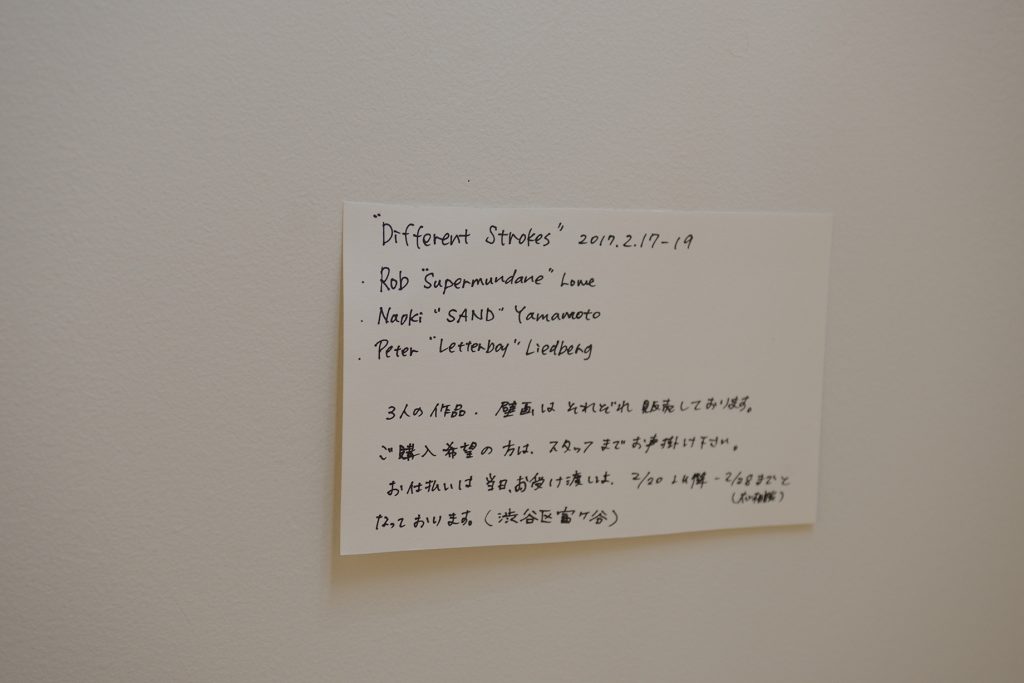 "Different Strokes" 2017.2.17-19
・Rob "Supermundane" Lowe
・Naoki "SAND" Yamamoto
・Peter "Letterboy" Liedberg
3人の作品・壁画はそれぞれ販売しております。
ご購入希望の方は、スタッフまでお声掛け下さい。
お仕払いは当日、お受け渡しは、2/20以降-2/28までと
なっております。(渋谷区富ヶ谷)